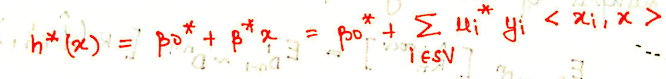 h*(x) = β0* + β* x = β0* + Σ i ∈ SV μi* yi < xi, x >